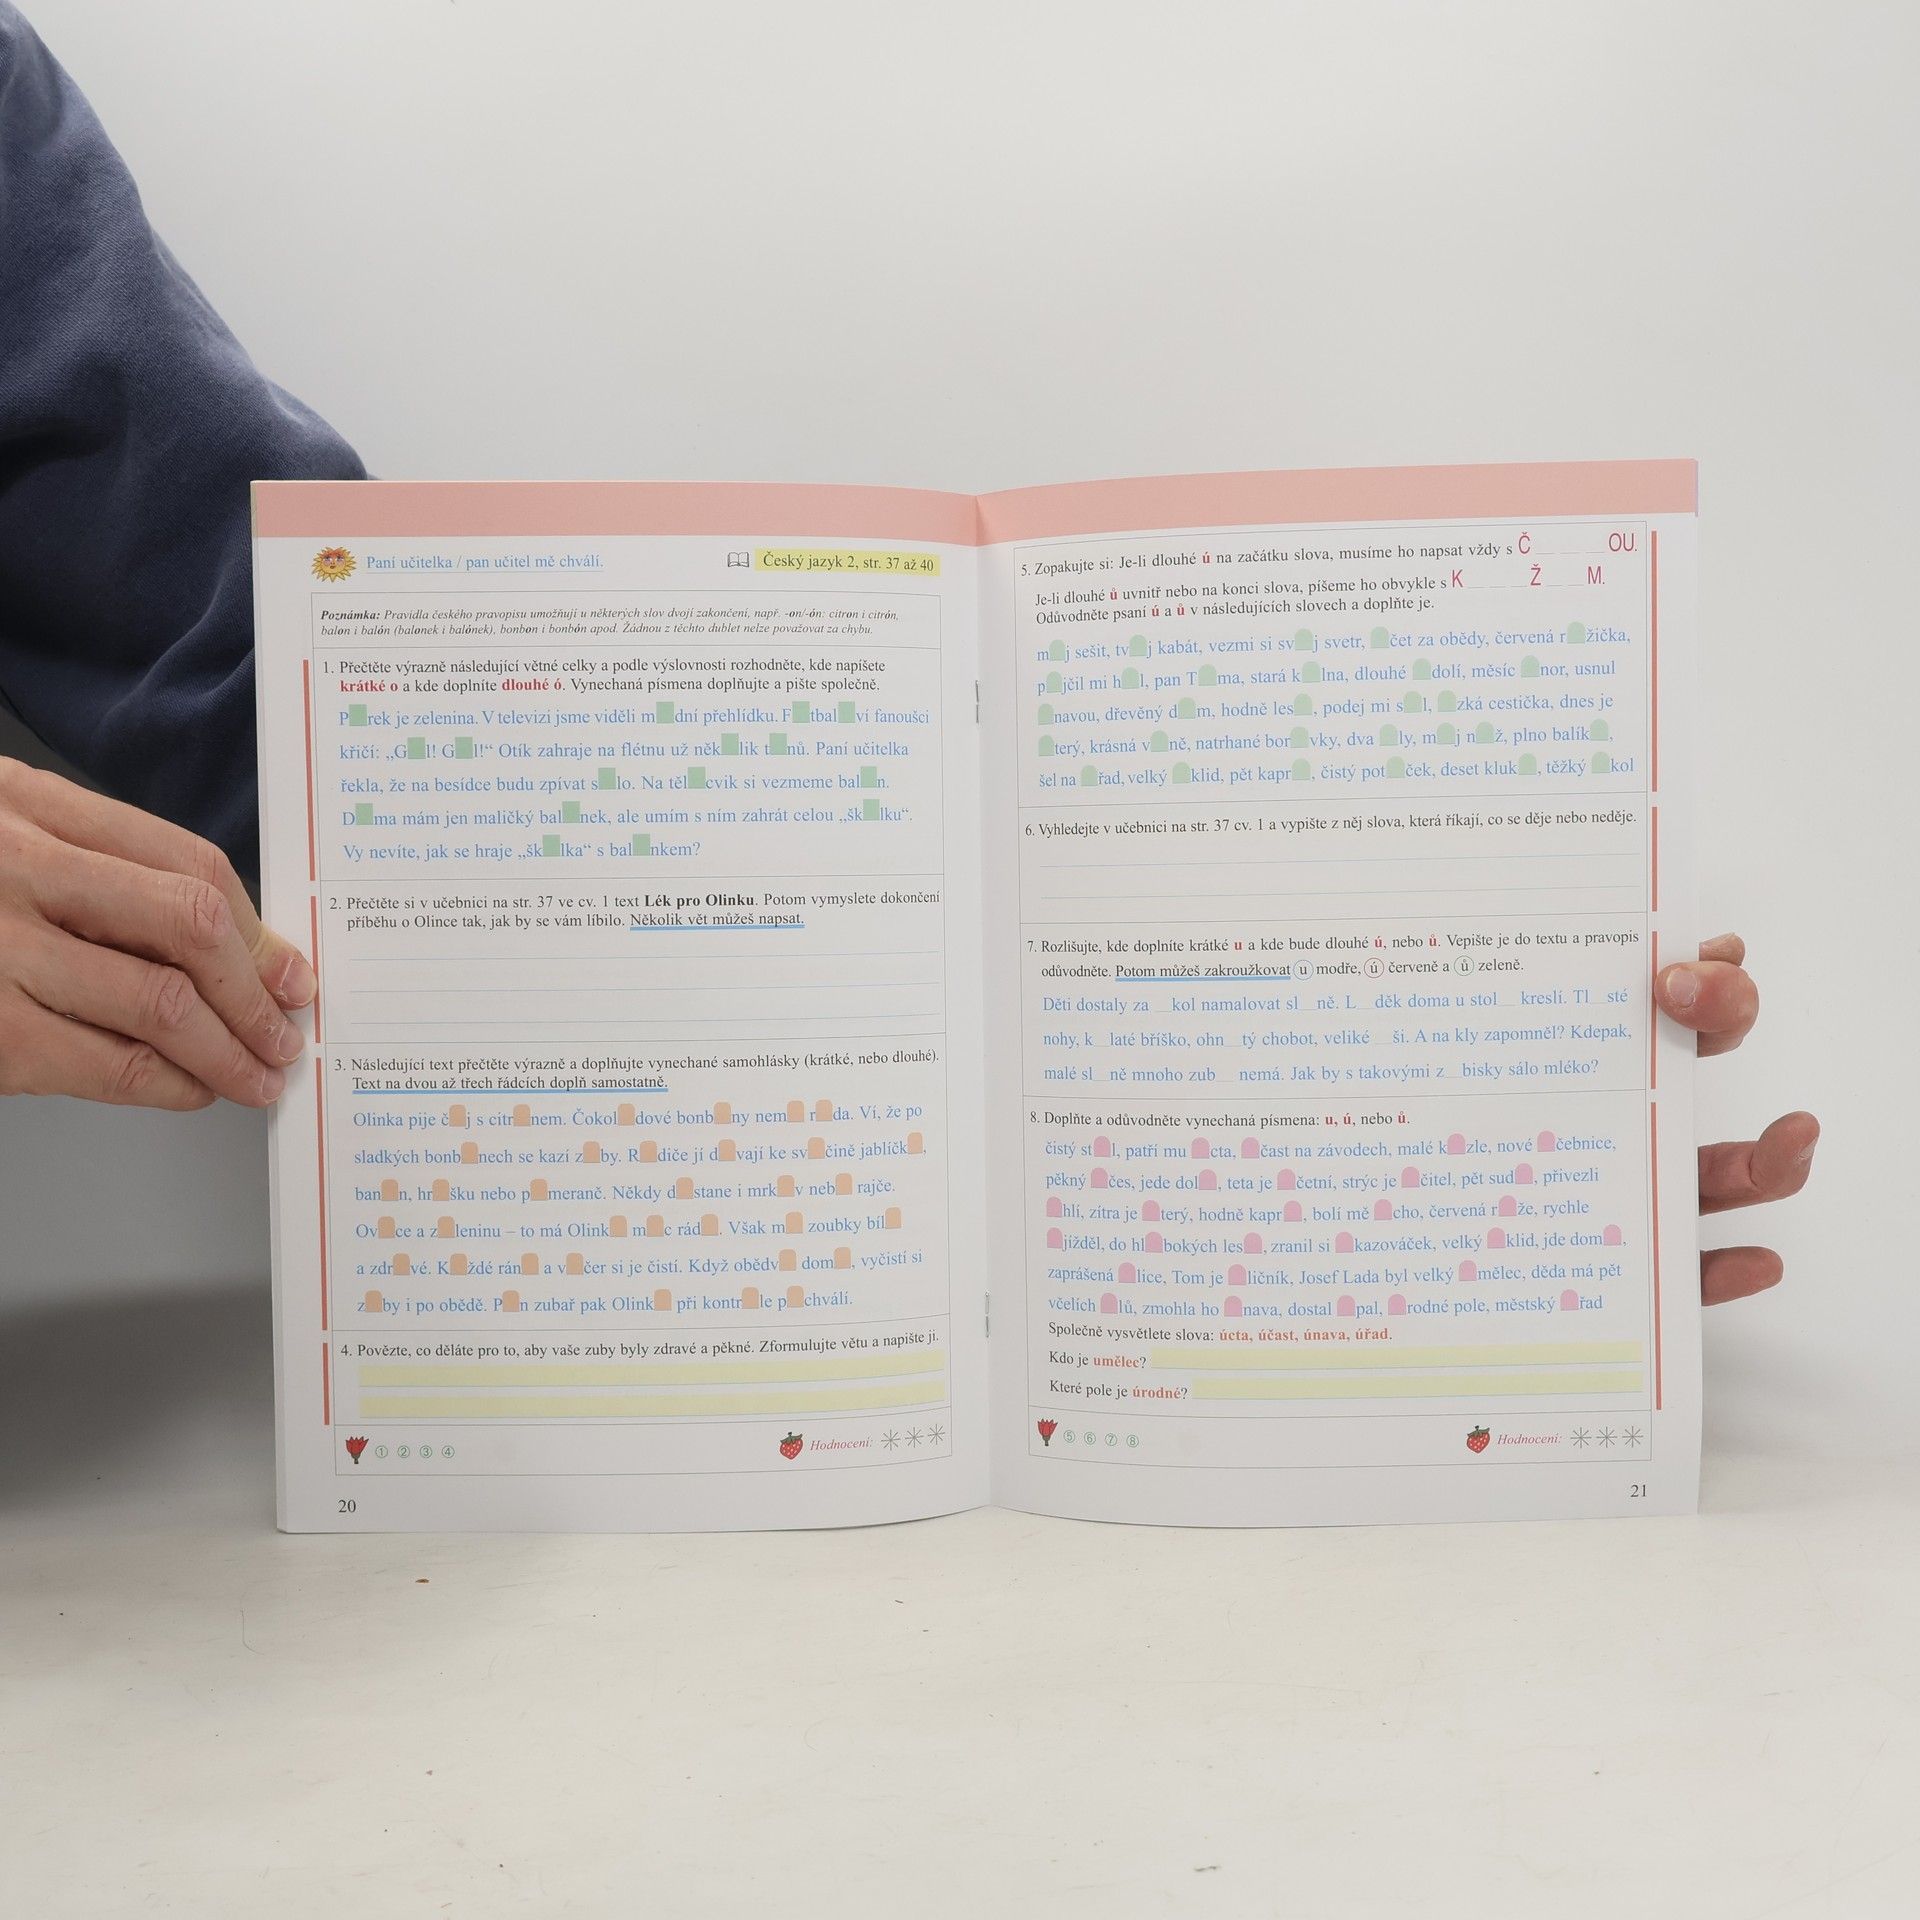 Paní učitelka / pan učitel mě chválí.
Český jazyk 2, str. 37 až 40
Poznámka: Pravidla českého pravopisu umožňují u některých slov dvojí zakončení, např. -on/-ón: citron i citrón,
balon i balón (balonek i balónek), bonbon i bonbón apod. Žádnou z těchto dublet nelze považovat za chybu.
1. Přečtěte výrazně následující větné celky a podle výslovnosti rozhodněte, kde napíšete
krátké o a kde doplníte dlouhé ó. Vynechaná písmena doplňujte a pište společně.
P rek je zelenina. V televizi jsme viděli m dní přehlídku. F tbal ví fanoušci
křičí: „G l! G l!“ Otík zahraje na flétnu už něk lik t nů. Paní učitelka
řekla, že na besídce budu zpívat s lo. Na těl cvik si vezmeme bal n.
D ma mám jen maličký bal nek, ale umím s ním zahrát celou „šk lku“.
Vy nevíte, jak se hraje „šk lka“ s bal nkem?
2. Přečtěte si v učebnici na str. 37 ve cv. 1 text Lék pro Olinku. Potom vymyslete dokončení
příběhu o Olince tak, jak by se vám líbilo. Několik vět můžeš napsat.
3. Následující text přečtěte výrazně a doplňujte vynechané samohlásky (krátké, nebo dlouhé).
Text na dvou až třech řádcích doplň samostatně.
Olinka pije č j s citr nem. Čokol dové bonb ny nem r da. Ví, že po
sladkých bonb nech se kazí z by. R diče jí d vají ke sv čině jablíčk ,
ban n, hr šku nebo p meranč. Někdy d stane i mrk v neb rajče.
Ov ce a z leninu – to má Olink m c rád . Však m zoubky bíl
a zdr vé. K ždé rán a v čer si je čistí. Když obědv dom , vyčistí si
z by i po obědě. P n zubař pak Olink při kontr le p chválí.
4. Povězte, co děláte pro to, aby vaše zuby byly zdravé a pěkné. Zformulujte větu a napište ji.
① ② ③ ④
Hodnocení:
20
5. Zopakujte si: Je-li dlouhé ú na začátku slova, musíme ho napsat vždy s Č__ __ __OU.
Je-li dlouhé ů uvnitř nebo na konci slova, píšeme ho obvykle s K__ __ Ž__ M.
Odůvodněte psaní ú a ů v následujících slovech a doplňte je.
m j sešit, tv j kabát, vezmi si sv j svetr, čet za obědy, červená r žička,
p jčil mi h l, pan T ma, stará k lna, dlouhé dolí, měsíc nor, usnul
navou, dřevěný d m, hodně les , podej mi s l, zká cestička, dnes je
terý, krásná v ně, natrhané bor vky, dva ly, m j n ž, plno balík ,
šel na řad, velký klid, pět kapr , čistý pot ček, deset kluk , těžký kol
6. Vyhledejte v učebnici na str. 37 cv. 1 a vypište z něj slova, která říkají, co se děje nebo neděje.
7. Rozlišujte, kde doplníte krátké u a kde bude dlouhé ú, nebo ů. Vepište je do textu a pravopis
odůvodněte. Potom můžeš zakroužkovat u modře, ú červeně a ů zeleně.
Děti dostaly za __kol namalovat sl__ně. L__děk doma u stol__ kreslí. Tl__sté
nohy, k__laté bříško, ohn__tý chobot, veliké __ši. A na kly zapomněl? Kdepak,
malé sl__ně mnoho zub__ nemá. Jak by s takovými z__bisky sálo mléko?
8. Doplňte a odůvodněte vynechaná písmena: u, ú, nebo ů.
čistý st l, patří mu cta, čast na závodech, malé k zle, nové čebnice,
pěkný čes, jede dol , teta je četní, strýc je čitel, pět sud , přivezli
hlí, zítra je terý, hodně kapr , bolí mě cho, červená r že, rychle
jížděl, do hl bokých les , zranil si kazováček, velký klid, jde dom ,
zaprášená lice, Tom je ličník, Josef Lada byl velký mělec, děda má pět
včelích lů, zmohla ho nava, dostal pal, rodné pole, městský řad
Společně vysvětlete slova: úcta, účast, únava, úřad.
Kdo je umělec?
Které pole je úrodné?
⑤ ⑥ ⑦ ⑧
Hodnocení:
21